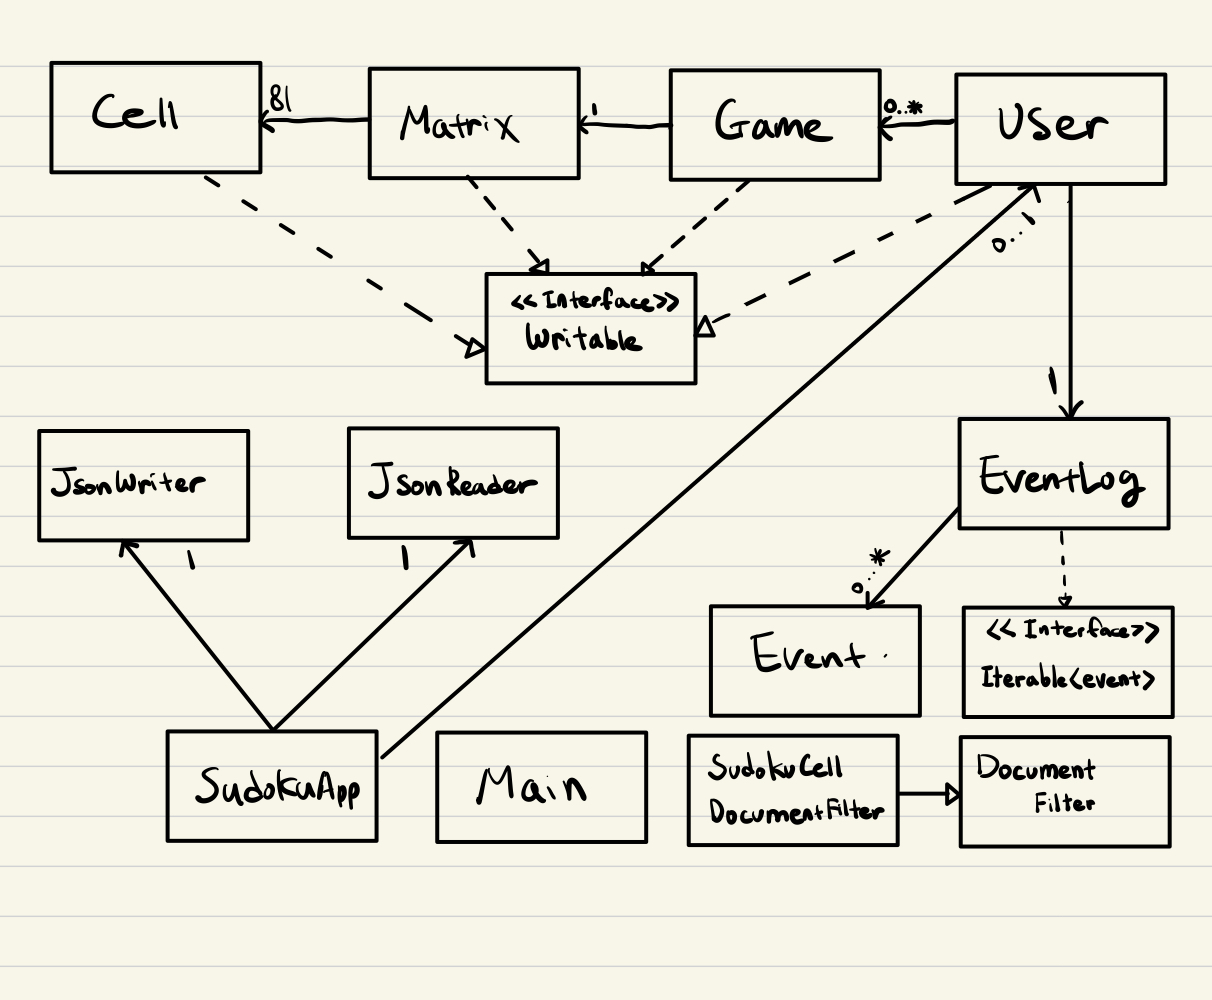 Cell
81
Matrix
1
Game
0..*
User
0...1
<<Interface>>
Writable
1
JsonWriter
JsonReader
EventLog
1
1
0...*
Event
<<Interface>>
Iterable<event>
SudokuApp
Main
SudokuCell
DocumentFilter
Document
Filter